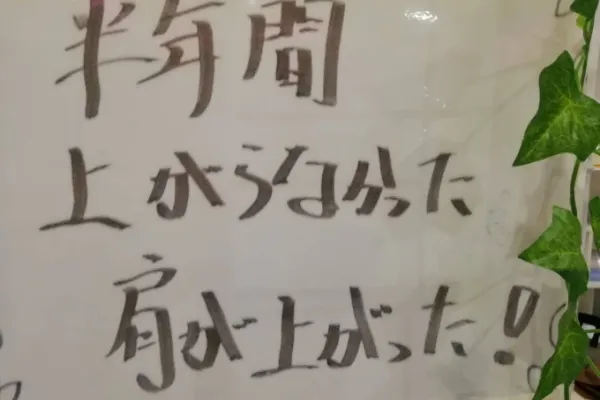 半年間
上がらなかった
肩が上がった!